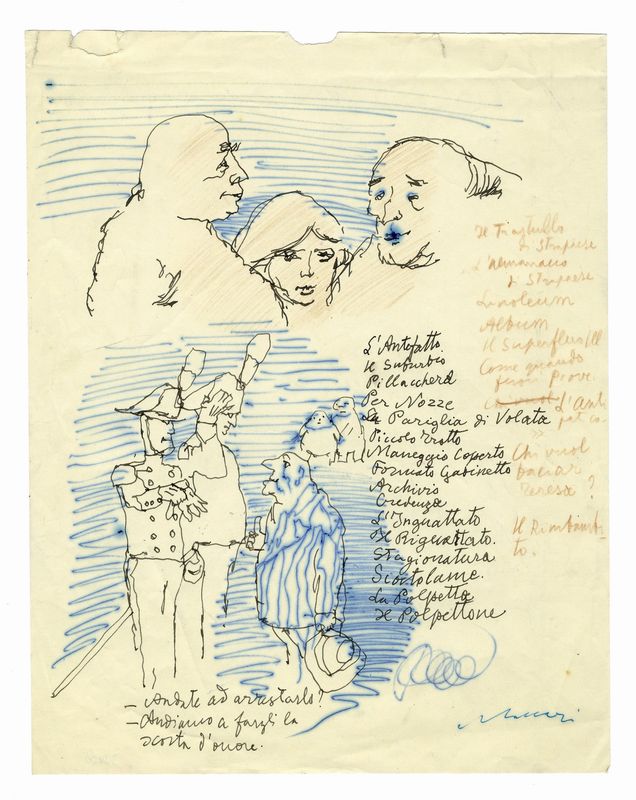 L'Antefatto
Il Suburbio
Pillacchera
Per Nozze
La Pariglia di Volata
Piccolo Trotto
Maneggio Coperto
Formato Gabinetto
Archivio
Credenza
L'Inguattato
Il Riguattato.
Stagionatura
Scatolame.
La Polpetta
Il Polpettone
Il Trastullo
di Strapaese
L'Almanacco
di Strapaese
Linoleum
Album
Il Superfluo Ill
Come quando
fuori piove.
L'Anti
pat co.
Chi vuol
baciar
Teresa?
Il Rimbambi
to.
– Andate ad arrestarlo?
– Andiamo a fargli la
scorta d'onore.
Maccari